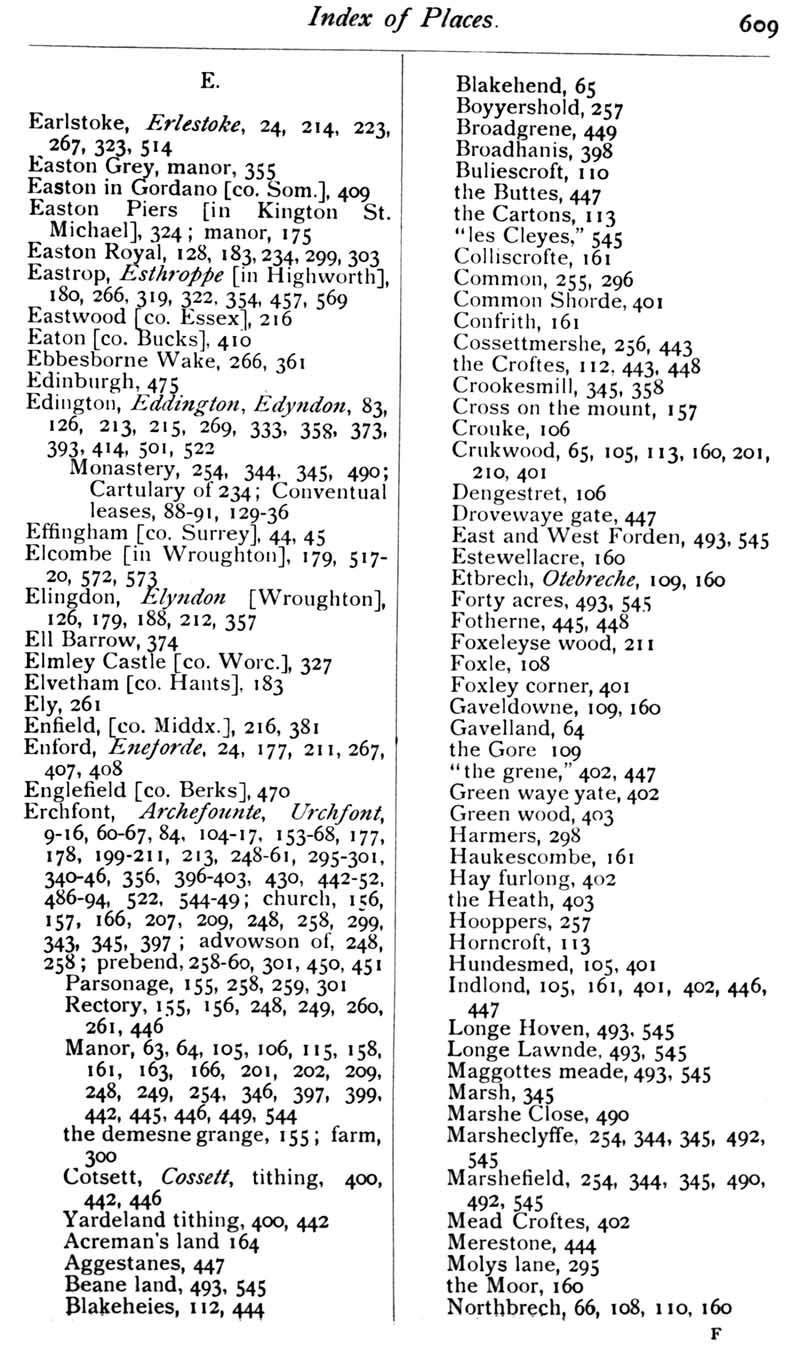 Index of Places.
609
E.
Earlstoke, Erlestoke, 24, 214, 223,
267, 323, 514
Easton Grey, manor, 355
Easton in Gordano [co. Som.], 409
Easton Piers [in Kington St.
Michael], 324; manor, 175
Easton Royal, 128, 183, 234, 299, 303
Eastrop, Esthroppe [in Highworth],
180, 266, 319, 322, 354, 457, 569
Eastwood [co. Essex], 216
Eaton [co. Bucks], 410
Ebbesborne Wake, 266, 361
Edinburgh, 475
Edington, Eddington, Edyndon, 83,
126, 213, 215, 269, 333, 358, 373,
393, 414, 501, 522
Monastery, 254, 344, 345, 490;
Cartulary of 234; Conventual
leases, 88-91, 129-36
Effingham [co. Surrey], 44, 45
Elcombe [in Wroughton], 179, 517-
20, 572, 573
Elingdon, Elyndon [Wroughton],
126, 179, 188, 212, 357
Ell Barrow, 374
Elmley Castle [co. Worc.], 327
Elvetham [co. Hants], 183
Ely, 261
Enfield, [co. Middx.], 216, 381
Enford, Eneforde, 24, 177, 211, 267,
407, 408
Englefield [co. Berks], 470
Erchfont, Archefounte, Urchfont,
9-16, 60-67, 84, 104-17, 153-68, 177,
178, 199-211, 213, 248-61, 295-301,
340-46, 356, 396-403, 430, 442-52,
486-94, 522, 544-49; church, 156,
157, 166, 207, 209, 248, 258, 299,
343, 345, 397; advowson of, 248,
258; prebend, 258-60, 301, 450, 451
Parsonage, 155, 258, 259, 301
Rectory, 155, 156, 248, 249, 260,
261, 446
Manor, 63, 64, 105, 106, 115, 158,
161, 163, 166, 201, 202, 209,
248, 249, 254, 346, 397, 399,
442, 445, 446, 449, 544
the demesne grange, 155; farm,
300
Cotsett, Cossett, tithing, 400,
442, 446
Yardeland tithing, 400, 442
Acreman's land 164
Aggestanes, 447
Beane land, 493, 545
Blakeheies, 112, 444
Blakehend, 65
Boyyershold, 257
Broadgrene, 449
Broadhanis, 398
Buliescroft, 110
the Buttes, 447
the Cartons, 113
"les Cleyes," 545
Colliscrofte, 161
Common, 255, 296
Common Shorde, 401
Confrith, 161
Cossettmershe, 256, 443
the Croftes, 112, 443, 448
Crookesmill, 345, 358
Cross on the mount, 157
Crouke, 106
Crukwood, 65, 105, 113, 160, 201,
210, 401
Dengestret, 106
Drovewaye gate, 447
East and West Forden, 493, 545
Estewellacre, 160
Etbrech, Otebreche, 109, 160
Forty acres, 493, 545
Fotherne, 445, 448
Foxeleyse wood, 211
Foxle, 108
Foxley corner, 401
Gaveldowne, 109, 160
Gavelland, 64
the Gore 109
"the grene," 402, 447
Green waye yate, 402
Green wood, 403
Harmers, 298
Haukescombe, 161
Hay furlong, 402
the Heath, 403
Hooppers, 257
Horncroft, 113
Hundesmed, 105, 401
Indlond, 105, 161, 401, 402, 446,
447
Longe Hoven, 493, 545
Longe Lawnde, 493, 545
Maggottes meade, 493, 545
Marsh, 345
Marshe Close, 490
Marsheclyffe, 254, 344, 345, 492,
545
Marshefield, 254, 344, 345, 490,
492, 545
Mead Croftes, 402
Merestone, 444
Molys lane, 295
the Moor, 160
Northbrech, 66, 108, 110, 160
F